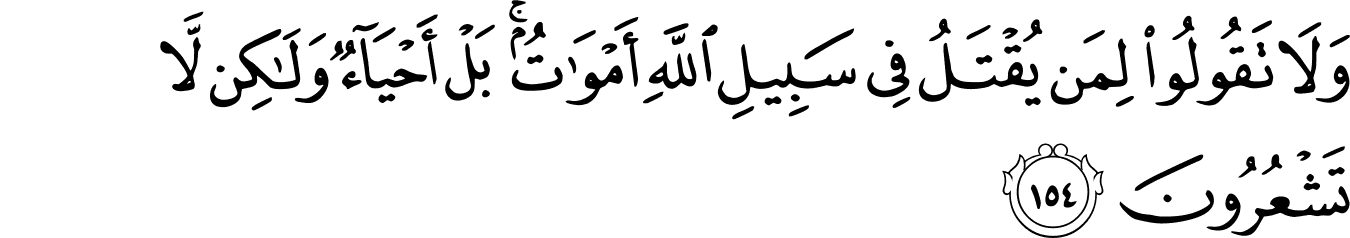 وَلَا تَقُولُوا۟ لِمَن يُقْتَلُ فِى سَبِيلِ ٱللَّهِ أَمْوَٰتٌۢ ۚ بَلْ أَحْيَآءٌ وَلَـٰكِن لَّا
تَشْعُرُونَ ١٥٤